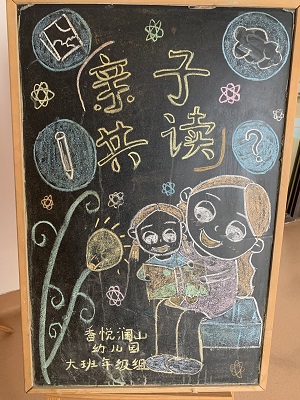 亲子
共读
?
香悦澜山
幼儿园
大班年级组